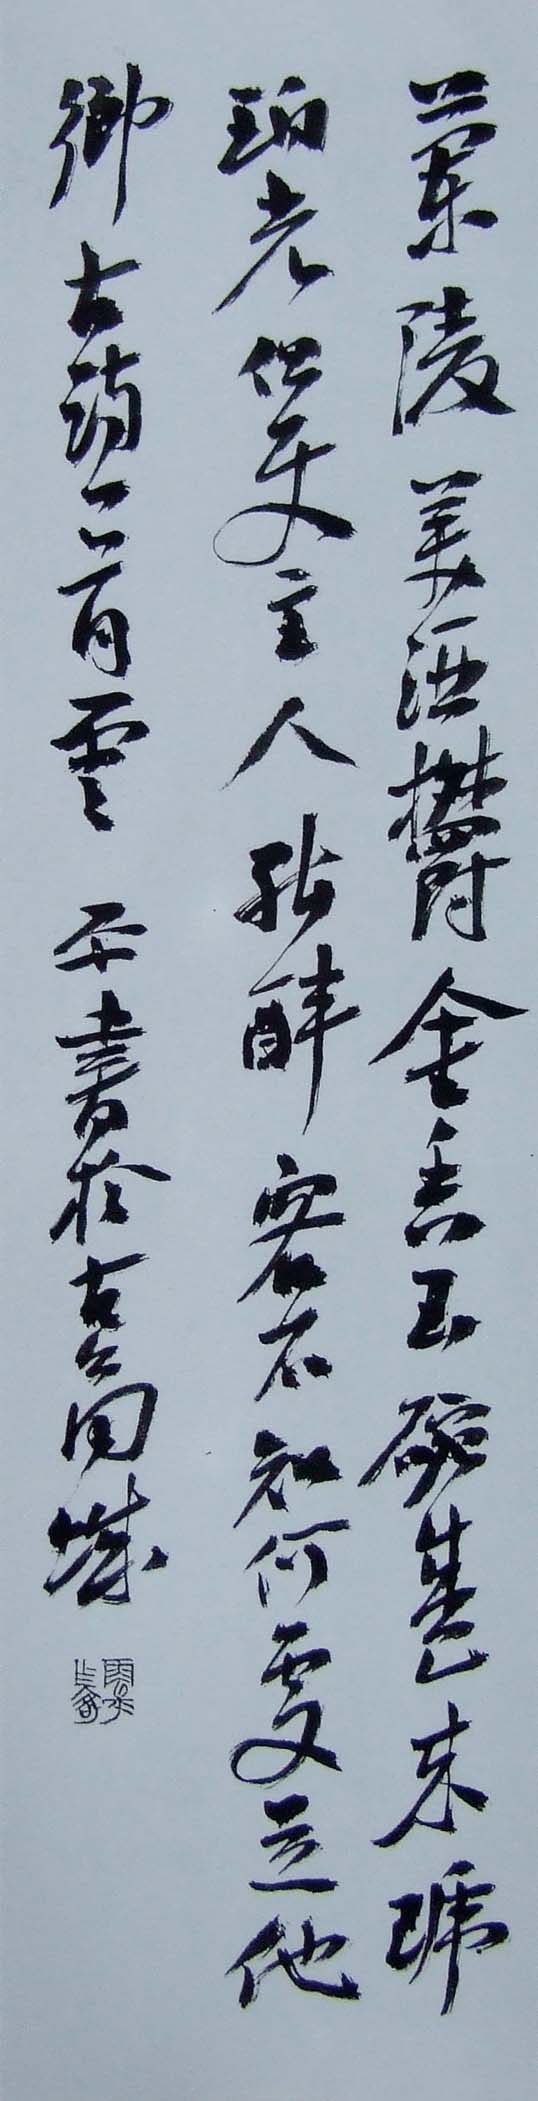 蘭陵美酒鬱金香玉碗盛来琥
珀光但使主人能醉客不知何處是他
鄉 古詩一首雲平書於古城